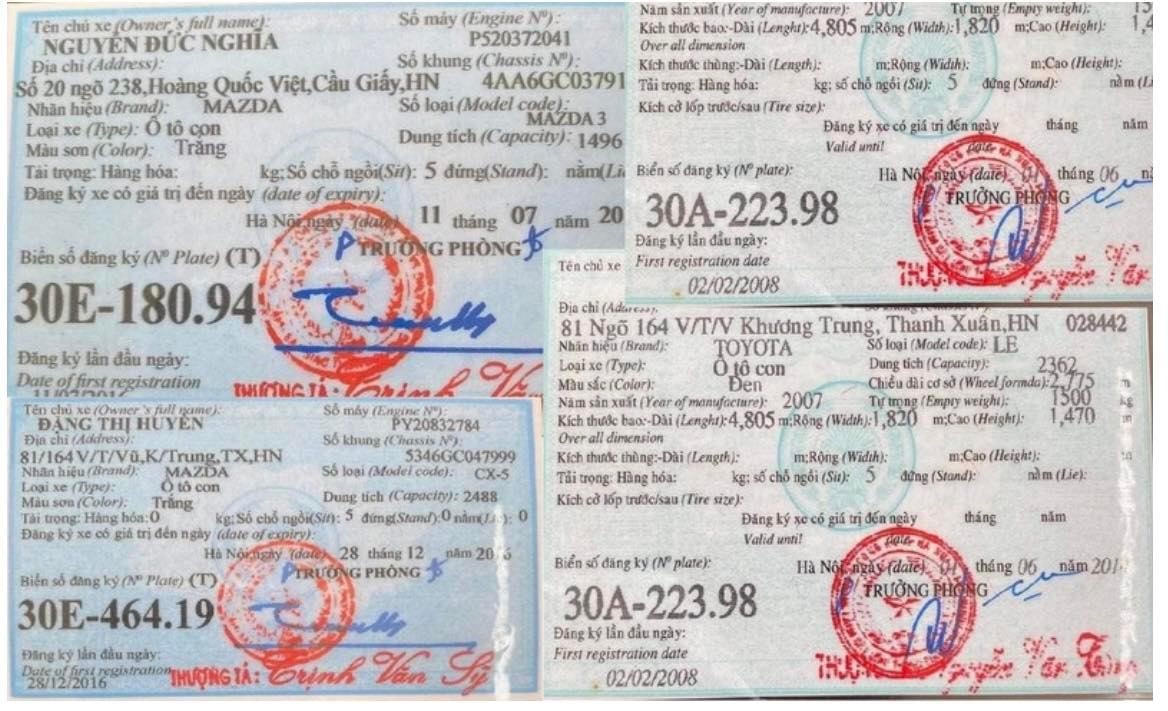 Tên chủ xe (Owner's full name):
NGUYỄN ĐỨC NGHĨA
Địa chỉ (Address):
Số 20 ngõ 238,Hoàng Quốc Việt,Cầu Giấy,HN
Nhãn hiệu (Brand): MAZDA
Loại xe (Type): Ô tô con
Màu sơn (Color): Trắng
Số máy (Engine Nº):
P520372041
Số khung (Chassis Nº):
4AA6GC03791
Số loại (Model code):
MAZDA 3
Dung tích (Capacity): 1496
Tải trọng: Hàng hóa: kg; Số chỗ ngồi(Sit): 5 đứng(Stand): nằm(Li
Đăng ký xe có giá trị đến ngày (date of expiry):
Hà Nội,ngày (date) 11 tháng 07 năm 20
TRƯỞNG PHÒNG
Biển số đăng ký (Nº Plate) (T)
30E-180.94
Đăng ký lần đầu ngày:
Date of first registration
THƯỢNG TÁ: Trịnh Vă
Năm sản xuất (Year of manufacture): 2007 Tự trọng (Empty weight): 15
Kích thước bao:-Dài (Lenght):4,805 m;Rộng (Width):1,820 m;Cao (Height): 1,4
Over all dimension
Kích thước thùng:-Dài (Length): m;Rộng (Width): m;Cao (Height):
Tải trọng: Hàng hóa: kg; số chỗ ngồi (Sit): 5 đứng (Stand): nằm (Li
Kích cỡ lốp trước/sau (Tire size):
Đăng ký xe có giá trị đến ngày tháng năm
Valid until date
Biển số đăng ký (Nº plate):
Hà Nội, ngày (date) 01 tháng 06
TRƯỞNG PHÒNG
30A-223.98
Đăng ký lần đầu ngày:
First registration date
02/02/2008
Nguyễn Vă
Tên chủ xe (Owner's full name):
ĐẶNG THỊ HUYỀN
Địa chỉ (Address):
81/164 V/T/Vũ,K/Trung,TX,HN
Nhãn hiệu (Brand): MAZDA
Loại xe (Type): Ô tô con
Màu sơn (Color): Trắng
Số máy (Engine Nº):
PY20832784
Số khung (Chassis Nº):
5346GC047999
Số loại (Model code): CX-5
Dung tích (Capacity): 2488
Tải trọng: Hàng hóa:0 kg; Số chỗ ngồi(Sit): 5 đứng(Stand):0 nằm(Lie): 0
Đăng ký xe có giá trị đến ngày (date of expiry):
Hà Nội,ngày (date) 28 tháng 12 năm 2016
TRƯỞNG PHÒNG
Biển số đăng ký (Nº Plate) (T)
30E-464.19
Đăng ký lần đầu ngày:
Date of first registration
28/12/2016
THƯỢNG TÁ: Trịnh Văn Sỹ
Tên chủ xe
Địa chỉ (Address):
81 Ngõ 164 V/T/V Khương Trung, Thanh Xuân,HN 028442
Nhãn hiệu (Brand): TOYOTA Số loại (Model code): LE
Loại xe (Type): Ô tô con Dung tích (Capacity): 2362
Màu sắc (Color): Đen Chiều dài cơ sở (Wheel formda):2,775 m
Năm sản xuất (Year of manufacture): 2007 Tự trọng (Empty weight): 1500 kg
Kích thước bao:-Dài (Lenght): 4,805 m;Rộng (Width):1,820 m;Cao (Height): 1,470 m
Over all dimension
Kích thước thùng:-Dài (Length): m;Rộng (Width): m;Cao (Height):
Tải trọng: Hàng hóa: kg; số chỗ ngồi (Sit): 5 đứng (Stand): nằm (Lie):
Kích cỡ lốp trước/sau (Tire size):
Đăng ký xe có giá trị đến ngày tháng năm
Valid until date
Biển số đăng ký (Nº plate):
Hà Nội, ngày (date) 01 tháng 06 năm 201
TRƯỞNG PHÒNG
30A-223.98
Đăng ký lần đầu ngày:
First registration date
02/02/2008